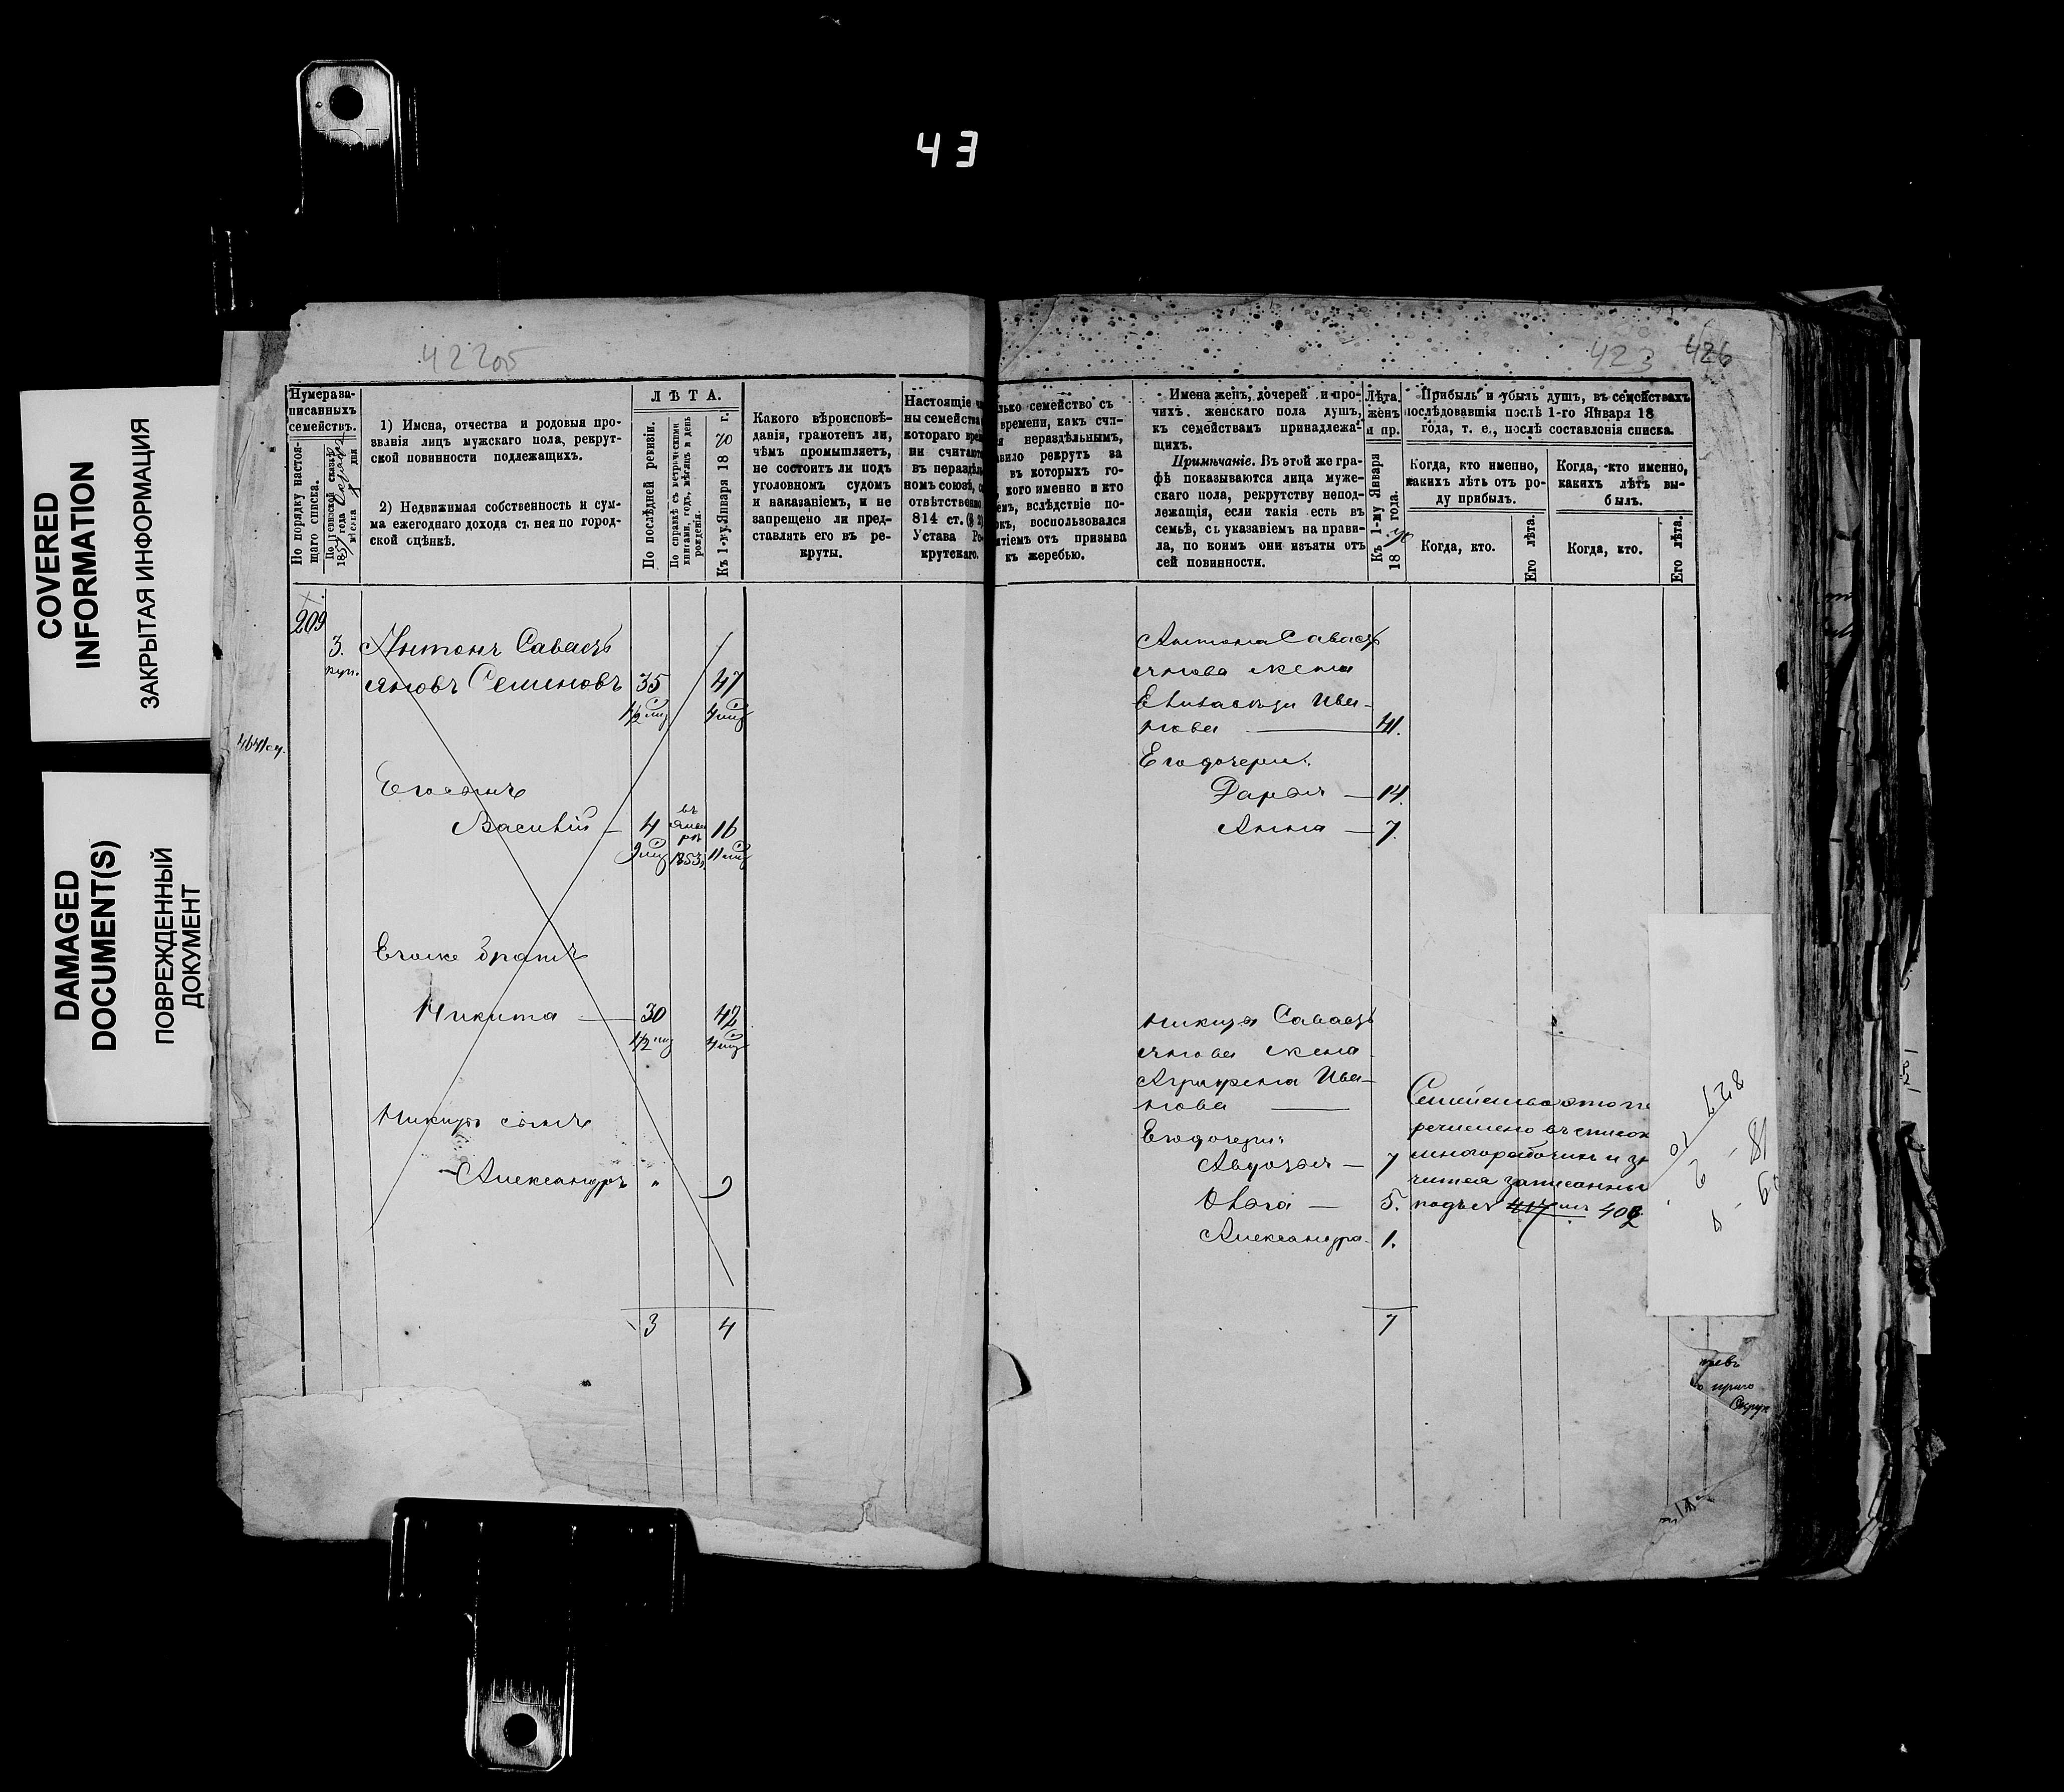 43
COVERED
INFORMATION
ЗАКРЫТАЯ ИНФОРМАЦИЯ
DAMAGED
DOCUMENT(S)
ПОВРЕЖДЕННЫЙ
ДОКУМЕНТ
42205
Нумера за-
писанныхъ
семействъ.
По порядку настоя-
щаго списка.
По ревизской сказкѣ
185 года
мѣсяца 8 дня
1) Имена, отчества и родовыя про-
званія лицъ мужскаго пола, рекрут-
ской повинности подлежащихъ.
2) Недвижимая собственность и сум-
ма ежегоднаго дохода съ нея по город-
ской оцѣнкѣ.
ЛѢТА.
По послѣдней ревизіи.
По справкѣ съ метрическими
книгами, годъ, мѣсяцъ и день
рожденія.
Къ 1-му Января 1870 г.
Какого вѣроисповѣ-
данія, грамотенъ ли,
чѣмъ промышляетъ,
не состоитъ ли подъ
уголовномъ судомъ
и наказаніемъ, и не
запрещено ли пред-
ставлять его въ ре-
круты.
Настоящіе
ны семейства
котораго
ни считают
въ нераздѣль
номъ союзѣ,
отвѣтственно
814 ст. (§ 2)
Устава Ре-
крутскаго.
209
3.
Антонъ Савасть
яновъ Семеновъ 35 47
1/2 4
464
Его сынъ
Василій — 4 въ Янва рѣ 1853 16
9 11
Его же братъ
Никита — 30 42
1/2 4
Никиты сынъ
Александръ " 9
3 4
423 426
семейство съ
времени, какъ счи-
нераздѣльнымъ,
рекрутъ за
въ которыхъ го-
кого именно и кто
вслѣдствіе по-
воспользовался
отъ призыва
къ жеребью.
Имена женъ, дочерей и про-
чихъ женскаго пола душъ,
къ семействамъ принадлежа-
щихъ.
Примѣчаніе. Въ этой же гра-
фѣ показываются лица муже-
скаго пола, рекрутству непод-
лежащія, если такія есть въ
семьѣ, съ указаніемъ на прави-
ла, по коимъ они изъяты отъ
сей повинности.
Лѣта
женъ
и пр.
Къ 1-му Января
1870 года.
Прибыль и убыль душъ, въ семействахъ
послѣдовавшія послѣ 1-го Января 18
года, т. е., послѣ составленія списка.
Когда, кто именно,
какихъ лѣтъ отъ ро-
ду прибылъ.
Когда, кто именно,
какихъ лѣтъ вы-
былъ.
Когда, кто.
Его лѣта.
Когда, кто.
Его лѣта.
Антона Савасть
янова жена
Елизавета Ива-
нова — 41.
Его дочери:
Дарья — 14.
Анна — 7.
Никиты Савасть
янова жена
Аграфена Ива-
нова —
Его дочери:
Авдотья — 7
Ольга — 5.
Александра 1.
7
Семейство это пе
речислено въ список
многорабочих и зн
чится записанны
подъ № 402
827